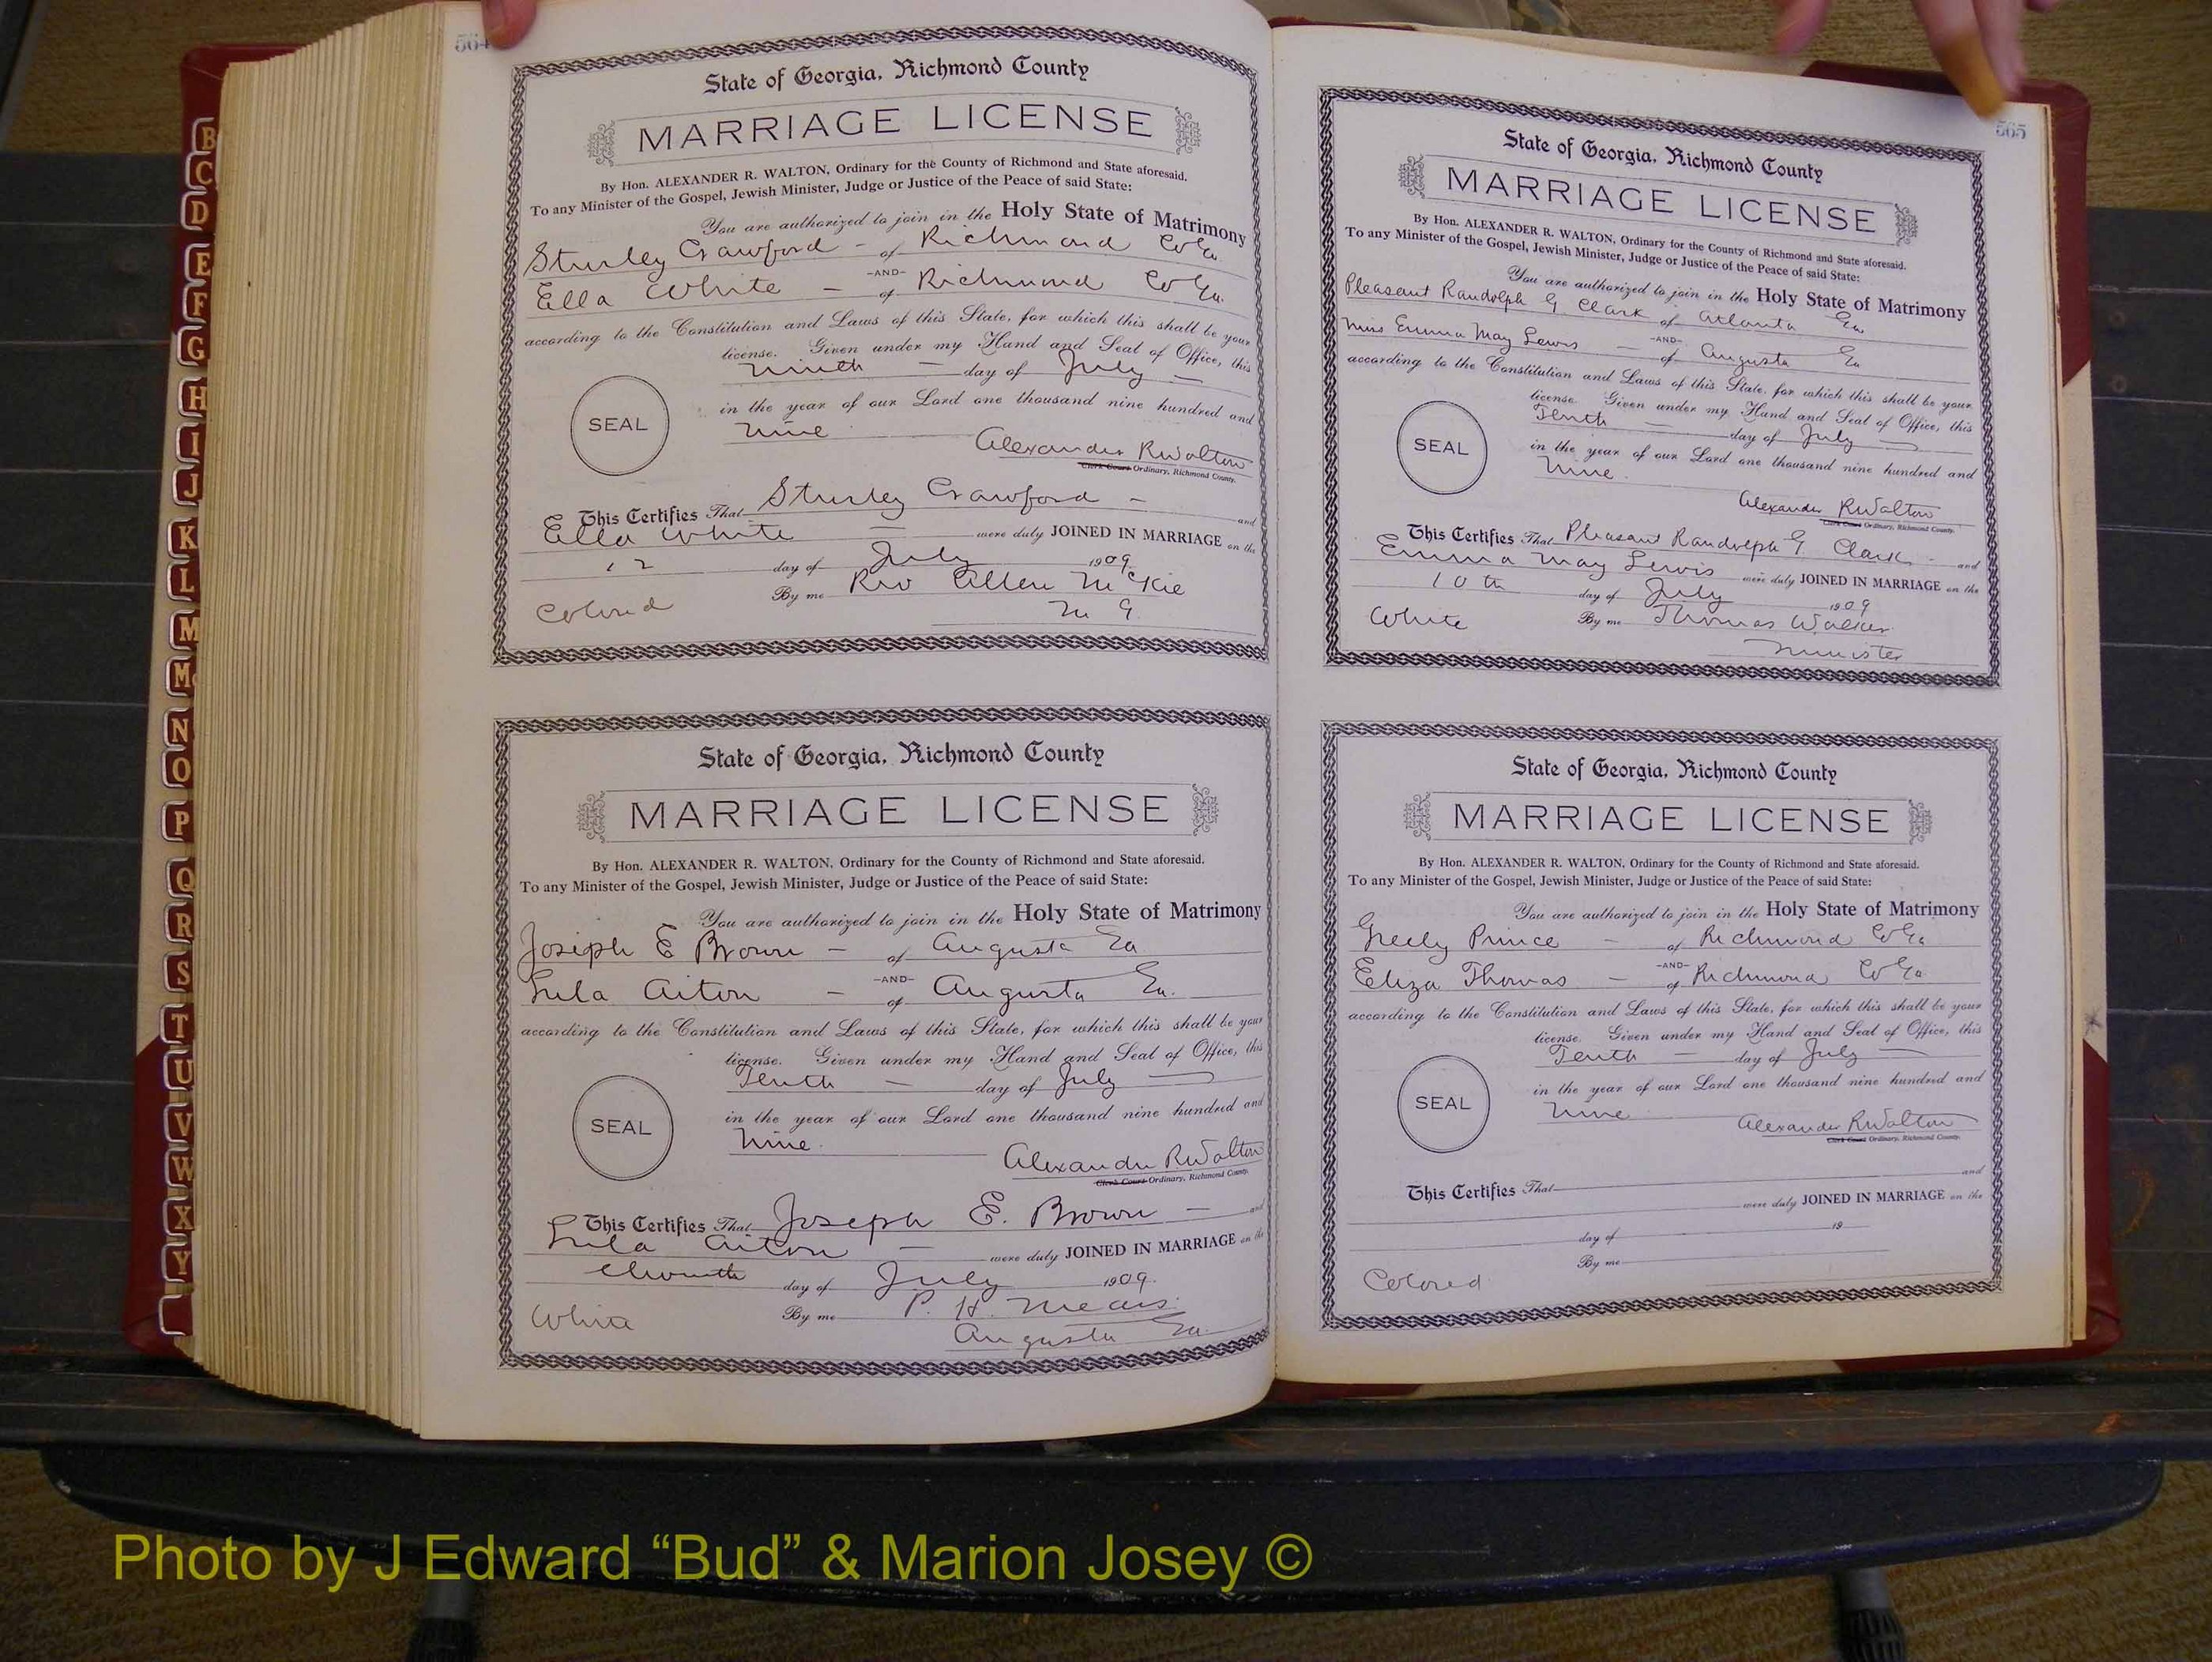 564
State of Georgia, Richmond County
MARRIAGE LICENSE
By Hon. ALEXANDER R. WALTON, Ordinary for the County of Richmond and State aforesaid.
To any Minister of the Gospel, Jewish Minister, Judge or Justice of the Peace of said State:
You are authorized to join in the Holy State of Matrimony
Sturley Crawford - of Richmond Co Ga
-AND-
Ella White - of Richmond Co Ga.
according to the Constitution and Laws of this State, for which this shall be your
license. Given under my Hand and Seal of Office, this
Ninth - day of July -
in the year of our Lord one thousand nine hundred and
SEAL
Nine
Alexander R Walton
Clerk Court Ordinary, Richmond County.
This Certifies That Sturley Crawford - and
Ella White = were duly JOINED IN MARRIAGE on the
12 day of July 1909
By me Rev Allen McKie
Colored
M G.
State of Georgia, Richmond County
MARRIAGE LICENSE
By Hon. ALEXANDER R. WALTON, Ordinary for the County of Richmond and State aforesaid.
To any Minister of the Gospel, Jewish Minister, Judge or Justice of the Peace of said State:
You are authorized to join in the Holy State of Matrimony
Joseph E Brown - of Augusta Ga
-AND-
Lula Aiton - of Augusta Ga.
according to the Constitution and Laws of this State, for which this shall be your
license. Given under my Hand and Seal of Office, this
Tenth - day of July -
in the year of our Lord one thousand nine hundred and
SEAL
Nine.
Alexander R Walton
Clerk Court Ordinary, Richmond County.
This Certifies That Joseph E. Brown - and
Lula Aiton - were duly JOINED IN MARRIAGE on the
day of July 1909.
White
By me P. H. Mears.
Augusta Ga.
565
State of Georgia, Richmond County
MARRIAGE LICENSE
By Hon. ALEXANDER R. WALTON, Ordinary for the County of Richmond and State aforesaid.
To any Minister of the Gospel, Jewish Minister, Judge or Justice of the Peace of said State:
You are authorized to join in the Holy State of Matrimony
Pleasant Randolph G Clark of Atlanta Ga
-AND-
Miss Emma May Lewis - of Augusta Ga
according to the Constitution and Laws of this State, for which this shall be your
license. Given under my Hand and Seal of Office, this
Tenth - day of July -
in the year of our Lord one thousand nine hundred and
SEAL
Nine.
Alexander R Walton
Clerk Court Ordinary, Richmond County.
This Certifies That Pleasant Randolph G. Clark - and
Emma May Lewis were duly JOINED IN MARRIAGE on the
10th day of July 1909
White
By me Thomas Walker
Minister
State of Georgia, Richmond County
MARRIAGE LICENSE
By Hon. ALEXANDER R. WALTON, Ordinary for the County of Richmond and State aforesaid.
To any Minister of the Gospel, Jewish Minister, Judge or Justice of the Peace of said State:
You are authorized to join in the Holy State of Matrimony
Greely Prince - of Richmond Co Ga
-AND-
Eliza Thomas - of Richmond Co Ga
according to the Constitution and Laws of this State, for which this shall be your
license. Given under my Hand and Seal of Office, this
Tenth - day of July -
in the year of our Lord one thousand nine hundred and
SEAL
Nine
Alexander R Walton
Clerk Court Ordinary, Richmond County.
This Certifies That and
were duly JOINED IN MARRIAGE on the
day of 19
By me
Colored
B
C
D
E
F
G
H
I
J
K
L
M
Mc
N
O
P
Q
R
S
T
U
V
W
X
Y
Photo by J Edward “Bud” & Marion Josey ©